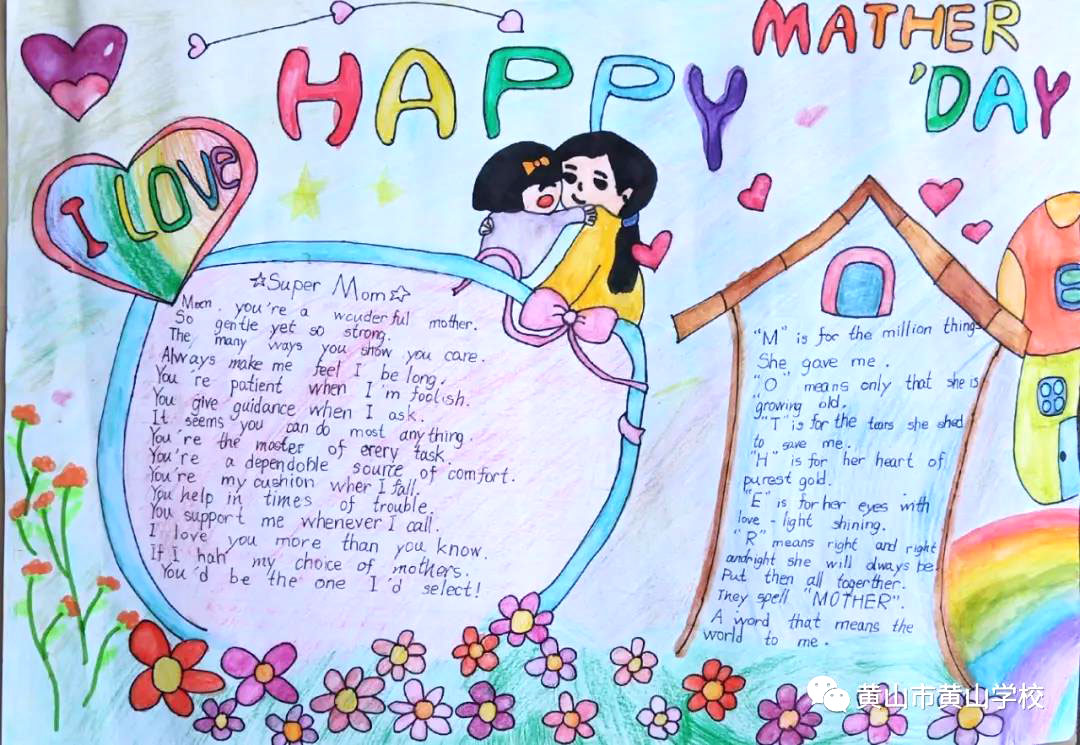 HAPPY
MATHER
'DAY
I LOVE
☆Super Mom☆
Mom, you're a wouderful mother.
So gentle yet so strong.
The many ways you show you care.
Always make me feel I be long.
You're patient when I'm foolish.
You give guidance when I ask.
It seems you can do most any thing.
You're the master of erery task.
You're a dependoble source of comfort.
You're my cushion wher I fall.
You help in times of trouble.
You support me whenever I call.
I love you more than you know.
If I hah my choice of mothers.
You'd be the one I'd select!
"M" is for the million things
She gave me.
"O" means only that she is
growing old.
"T" is for the tears she shed
to save me.
"H" is for her heart of
purest gold.
"E" is for her eyes with
love-light shining.
"R" means right and right
andright she will always be.
Put then all togerther.
They spell "MOTHER".
A word that means the
world to me.
黄山市黄山学校